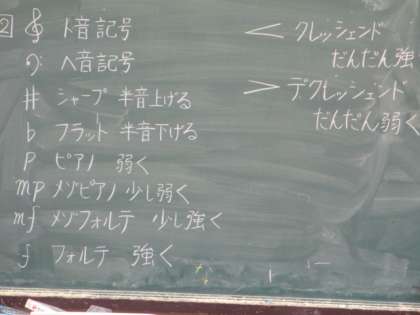 2 𝄞 ト音記号
𝄢 ヘ音記号
♯ シャープ 半音上げる
♭ フラット 半音下げる
p ピアノ 弱く
mp メゾピアノ 少し弱く
mf メゾフォルテ 少し強く
f フォルテ 強く
< クレッシェンド
だんだん強
> デクレッシェンド
だんだん弱く